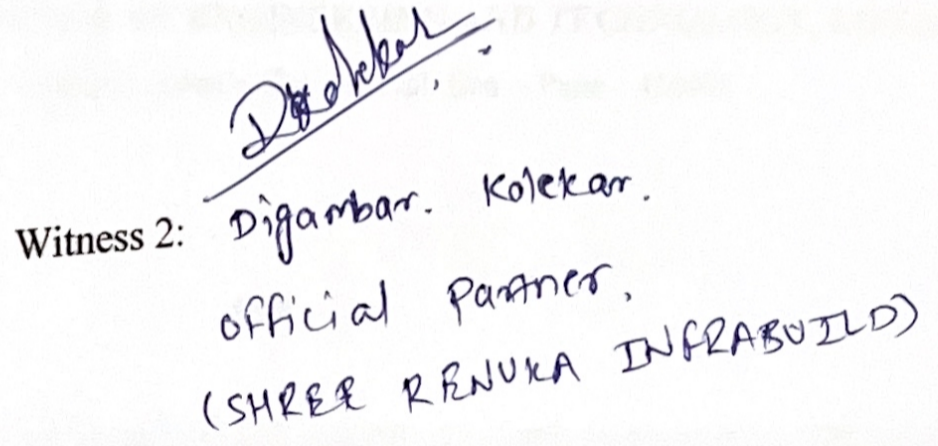 Witness 2: Digambar. Kolekar.
official Partner.
(SHREE RENUKA INFRABUILD)